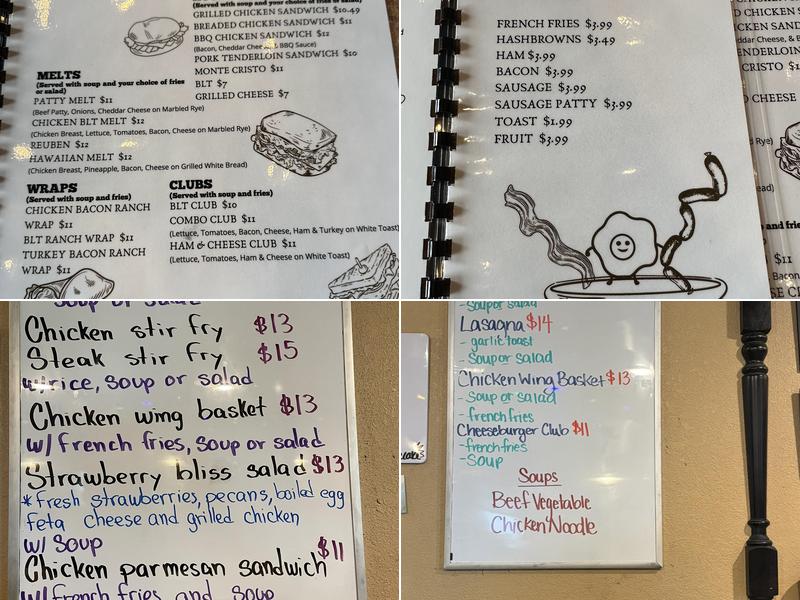 (Served with soup and your choice of fries or salad)
GRILLED CHICKEN SANDWICH $10.49
BREADED CHICKEN SANDWICH $11
BBQ CHICKEN SANDWICH $12
(Bacon, Cheddar Cheese, BBQ Sauce)
PORK TENDERLOIN SANDWICH $10
MONTE CRISTO $11
BLT $7
GRILLED CHEESE $7
MELTS
(Served with soup and your choice of fries
or salad)
PATTY MELT $11
(Beef Patty, Onions, Cheddar Cheese on Marbled Rye)
CHICKEN BLT MELT $12
(Chicken Breast, Lettuce, Tomatoes, Bacon, Cheese on Marbled Rye)
REUBEN $12
HAWAIIAN MELT $12
(Chicken Breast, Pineapple, Bacon, Cheese on Grilled White Bread)
WRAPS
(Served with soup and fries)
CHICKEN BACON RANCH
WRAP $11
BLT RANCH WRAP $11
TURKEY BACON RANCH
WRAP $11
CLUBS
(Served with soup and fries)
BLT CLUB $10
COMBO CLUB $11
(Lettuce, Tomatoes, Bacon, Cheese, Ham & Turkey on White Toast)
HAM & CHEESE CLUB $11
(Lettuce, Tomatoes, Ham & Cheese on White Toast)
FRENCH FRIES $3.99
HASHBROWNS $3.49
HAM $3.99
BACON $3.99
SAUSAGE $3.99
SAUSAGE PATTY $3.99
TOAST $1.99
FRUIT $3.99
soup or salad
Chicken stir fry $13
Steak stir fry $15
w/rice, soup or salad
Chicken wing basket $13
w/french fries, soup or salad
Strawberry bliss salad $13
*fresh strawberries, pecans, boiled egg
feta cheese and grilled chicken
w/ soup
Chicken parmesan sandwich $11
w/french fries and soup
- soup or salad
Lasagna $14
- garlic toast
- Soup or salad
Chicken Wing Basket $13
- Soup or salad
- french fries
Cheeseburger Club $11
- french fries
- Soup
Soups
Beef Vegetable
Chicken Noodle